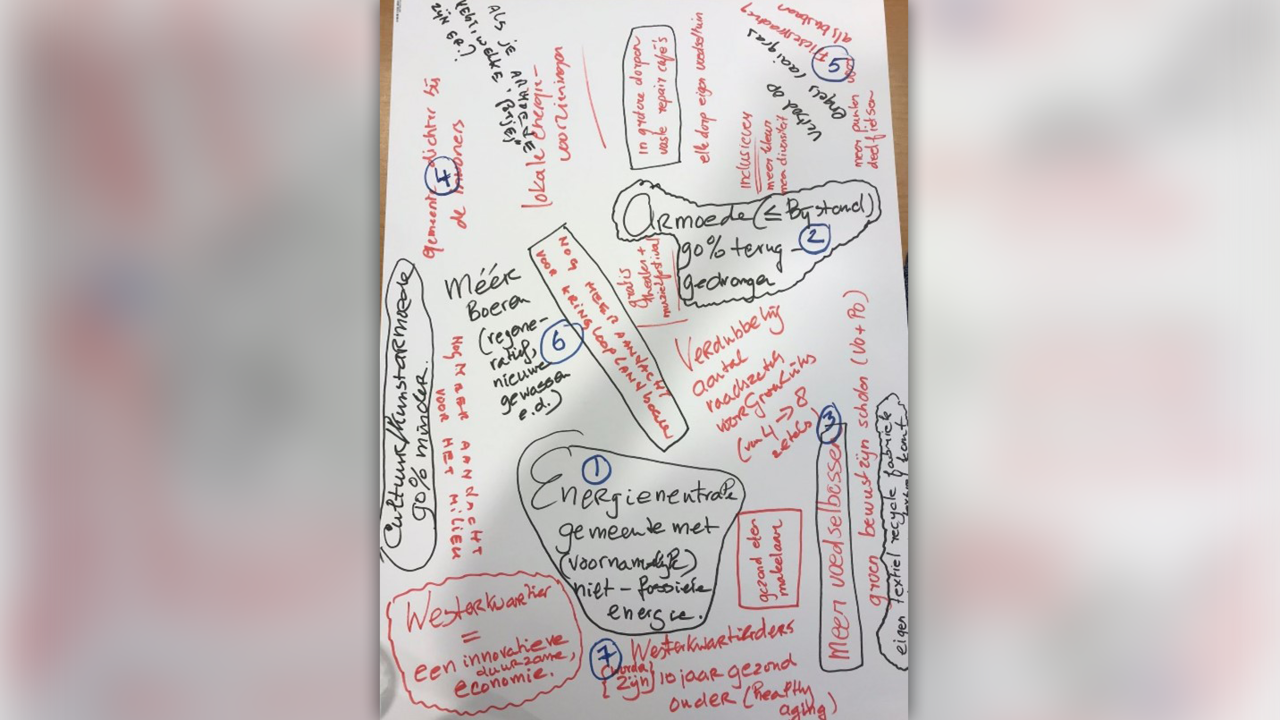 ALS JE ARMOEDE
ZIJN ER?
gemeente dichter bij
4
de inwoners
lokale energie-
voorzieningen
in grotere dorpen
vaste repair café's
elk dorp eigen voedseltuin
als basisbaan
5
engels raaigras
verbod op
meer punten voor
deelfietsen
inclusiever
meer klein
mendiensten
Armoede (≤ Bijstand)
90% terug -
2
gedrongen
gratis
theater +
muziekfestival
NOG MEER AANDACHT
VOOR KRINGLOOP LANDBOUW
Méér
Boeren
(regene-
ratief,
6
nieuwe
gewassen
e.d.)
Cultuur/Kunstarmoede
90% minder.
NOG MEER AANDACHT
VOOR HET MILIEU
Verdubbeling
aantal
raadszetels
voor GroenLinks
(van 4 → 8
zetels)
3
meer voedselbossen
groen bewustzijn scholen (VO + PO)
eigen textiel recycle fabriek
1
Energieneutrale
gemeente met
(voornamelijk)
niet-fossiele
energie.
gezond eten
makelaar
Westerkwartier
=
een innovatieve
duurzame,
economie.
7
Westerkwartierders
(worden)
(zijn) 10 jaar gezond
ouder (healthy
aging)